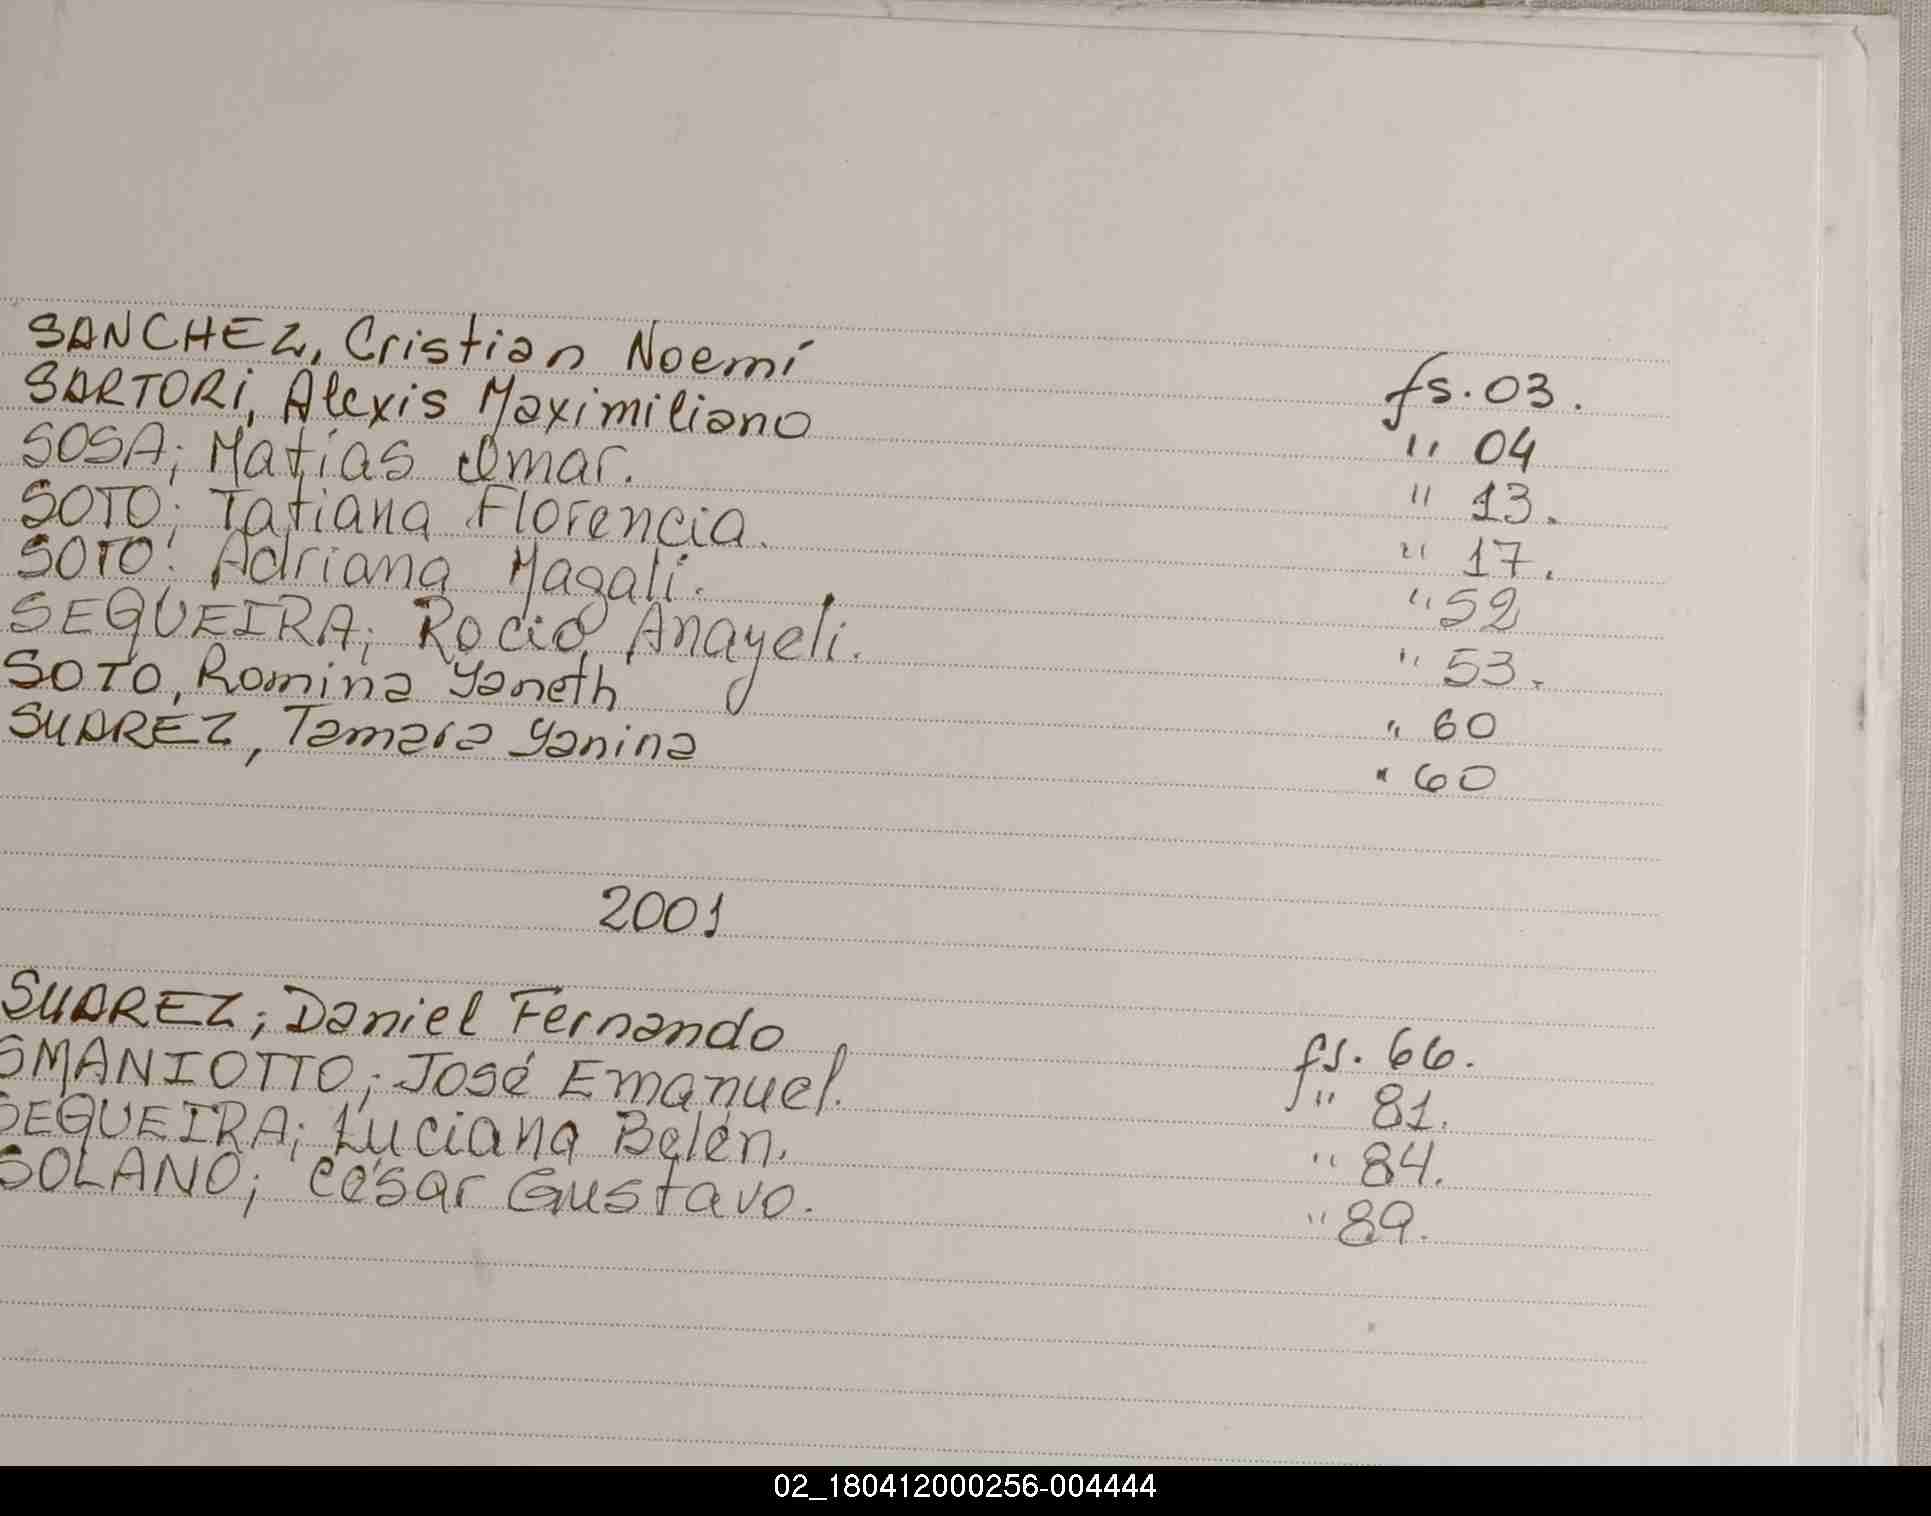 SANCHEZ, Cristian Noemí fs. 03.
SARTORI, Alexis Maximiliano " 04
SOSA; Matías Omar. " 13.
SOTO; Tatiana Florencia. " 17.
SOTO; Adriana Magali. " 52
SEQUEIRA; Rocío Anayeli. " 53.
SOTO, Romina Yaneth " 60
SUAREZ, Tamara Yanina " 60
2001
SUAREZ; Daniel Fernando fs. 66.
SMANIOTTO; José Emanuel. " 81.
SEQUEIRA; Luciana Belén. " 84.
SOLANO; César Gustavo. " 89.
02_180412000256-004444